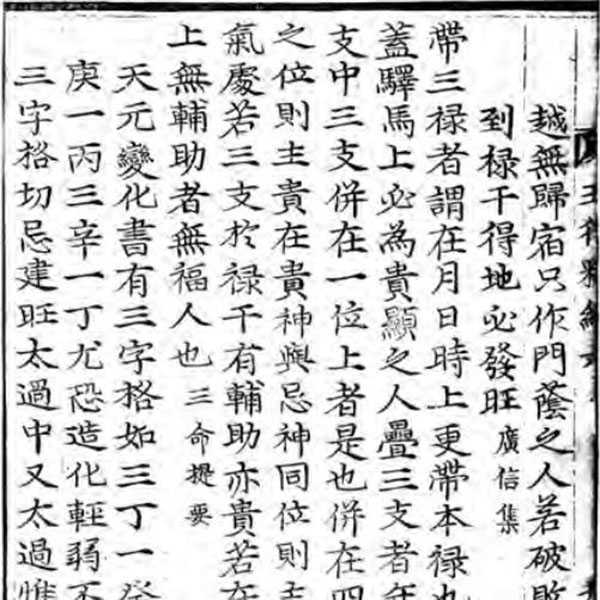 越無歸宿只作門蔭之人若破敗
到祿干得地必發旺廣信集
帶三祿者謂在月日時上更帶本祿也
蓋驛馬上必為貴顯之人疊三支者年
支中三支併在一位上者是也併在四
之位則主貴在貴神與忌神同位則主
氣處若三支於祿干有輔助亦貴若在
上無輔助者無福人也三命提要
天元變化書有三字格如三丁一癸
庚一丙三辛一丁尤恐造化輕弱不
三字格切忌建旺太過中又太過惟